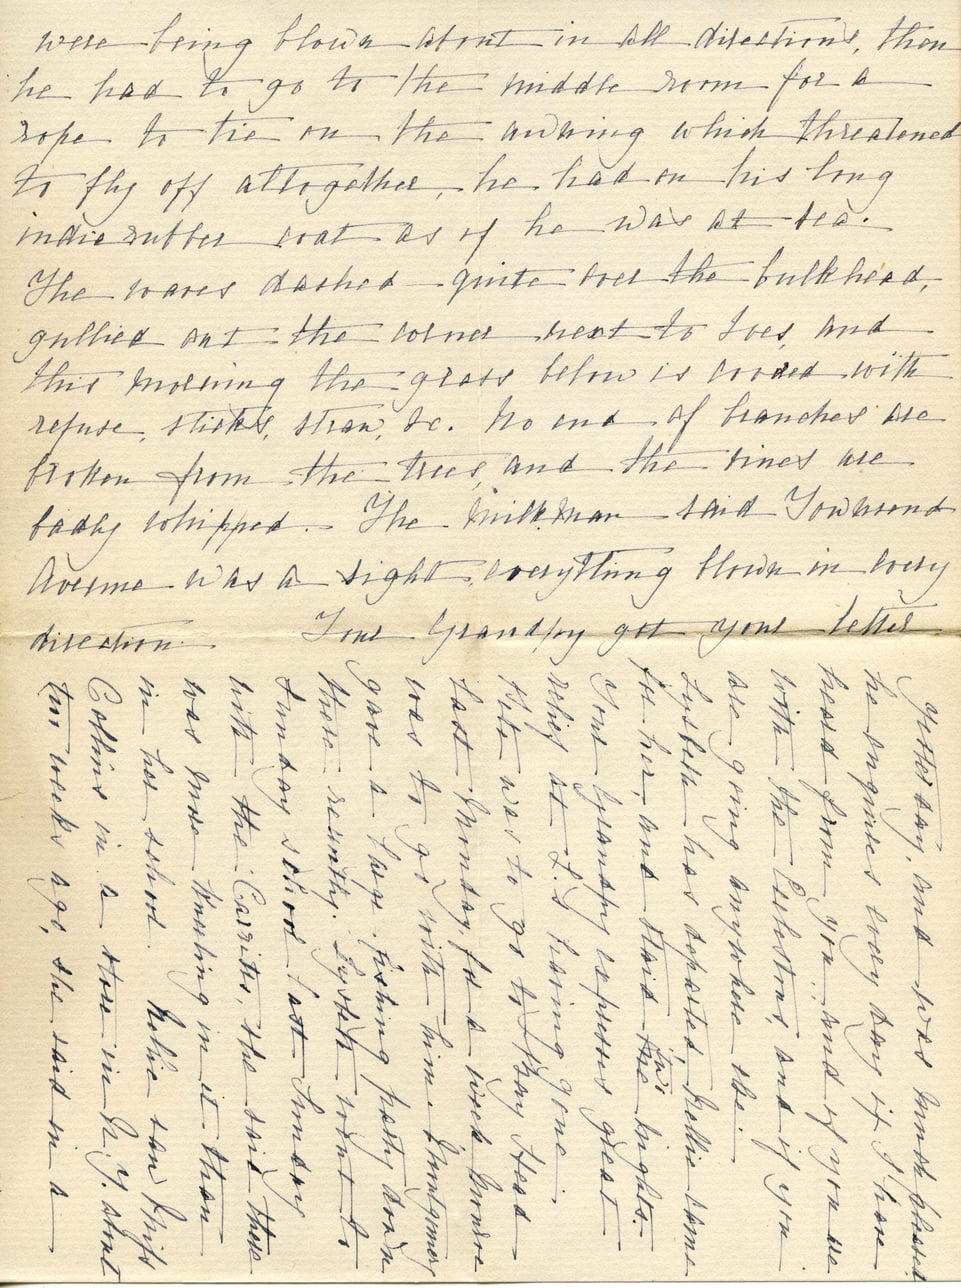 were being blown about in all directions, then
he had to go to the middle room for a
rope to tie on the awning which threatened
to fly off altogether, he had on his long
india rubber coat as if he was at sea.
The waves dashed quite over the bulkhead,
gullied out the corner next to Ives, and
this morning the grass below is covered with
refuse, sticks, straw, &c. No end of branches are
broken from the trees, and the vines are
badly whipped. The milkman said Townsend
Avenue was a sight, everything blown in every
direction. Your Grandpy got your letter
yesterday, and was much pleased,
he inquires every day if I have
heard from you, and if you are
with the Eelestons, and if you
are going anywhere else.
Lysbeth has departed, Nellie came
for her, and staid two nights.
Your Grandpy expresses great
relief at L.'s having gone.
was to go to Bay Head
last Monday for a week, Munroe
was to go with him. Montgomery
gave a large fishing party down
there recently. Lysbeth went to
Sunday school last Sunday
with the Carritts, she said there
was more kneeling in it than
in her school. Nellie saw Miss
Collins in a store in N.Y. about
two weeks ago, she said in a